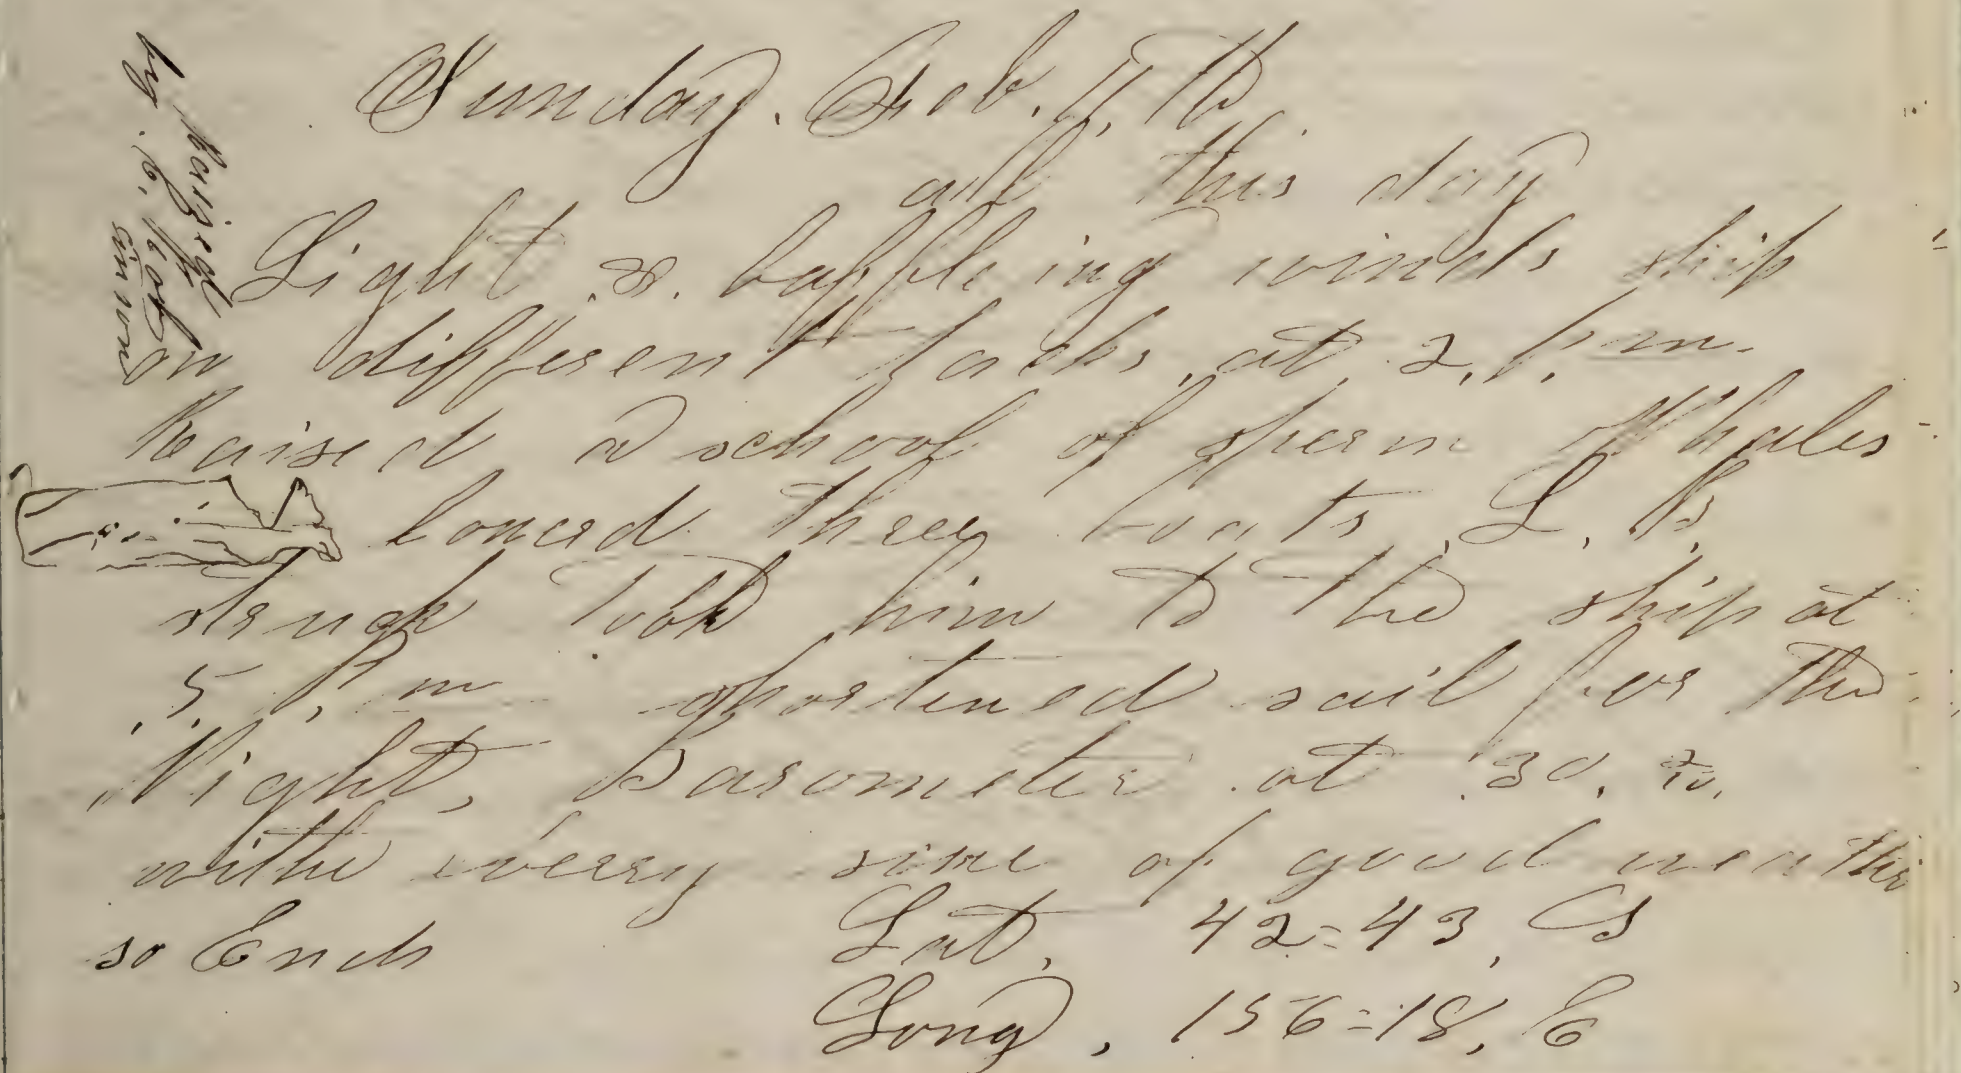 Sunday. Feb. 11, th
all this day
Light & baffleing winds ship
on different tacks, at 2, P, m.
Raised a school of sperm Whales
lowerd three boats, L, B,
struck took him to the ship at
5, P, m shortened sail for the
Night, Barometer at 30, 2/10,
withe every sine of good weather
so Ends Lat, 42=43, S
Long, 156=18, E
Raised
by